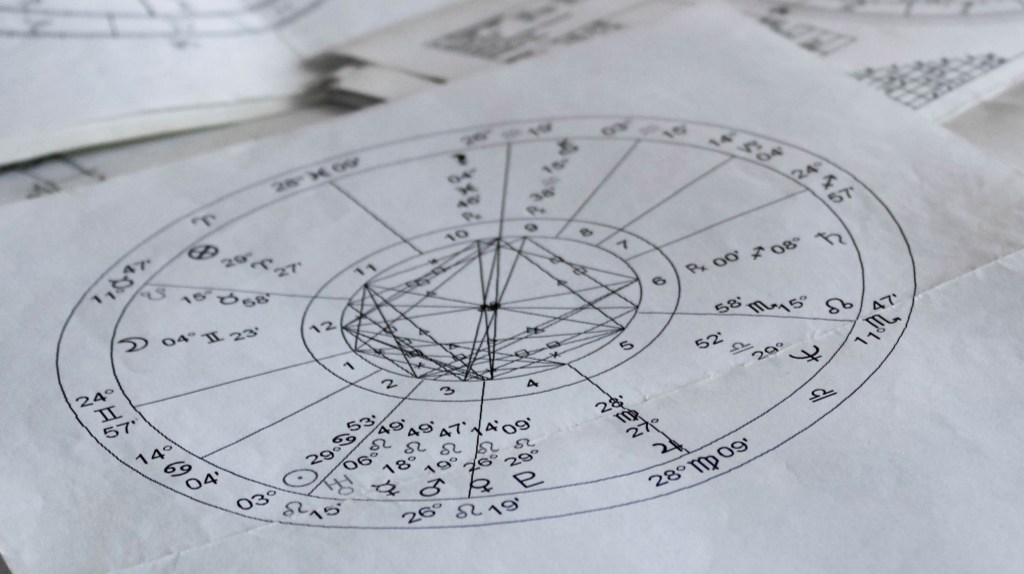 28° ♓ 09'
26° ♒ 19'
03° ♒ 15'
14° ♑ 04'
24° ♐ 57'
♈
11° ♉ 47'
24° ♊ 57'
14° ♋ 04'
03° ♌ 15'
26° ♌ 19'
28° ♍ 09'
♎
11° ♏ 47'
⊗ 26° ♈ 27'
☋ 15° ♉ 58'
☽ 04° ♊ 23'
☉ 29° ♋ 53'
♅ 06° ♌ 49'
☿ 18° ♌ 49'
♂ 19° ♌ 47'
♀ 26° ♌ 14'
♇ 29° ♌ 09'
♃ 27° ♍
♆ 29° ♎ 52'
☊ 15° ♏ 58'
♄ 08° ♐ 00' ℞
1
2
3
4
5
6
7
8
9
10
11
12